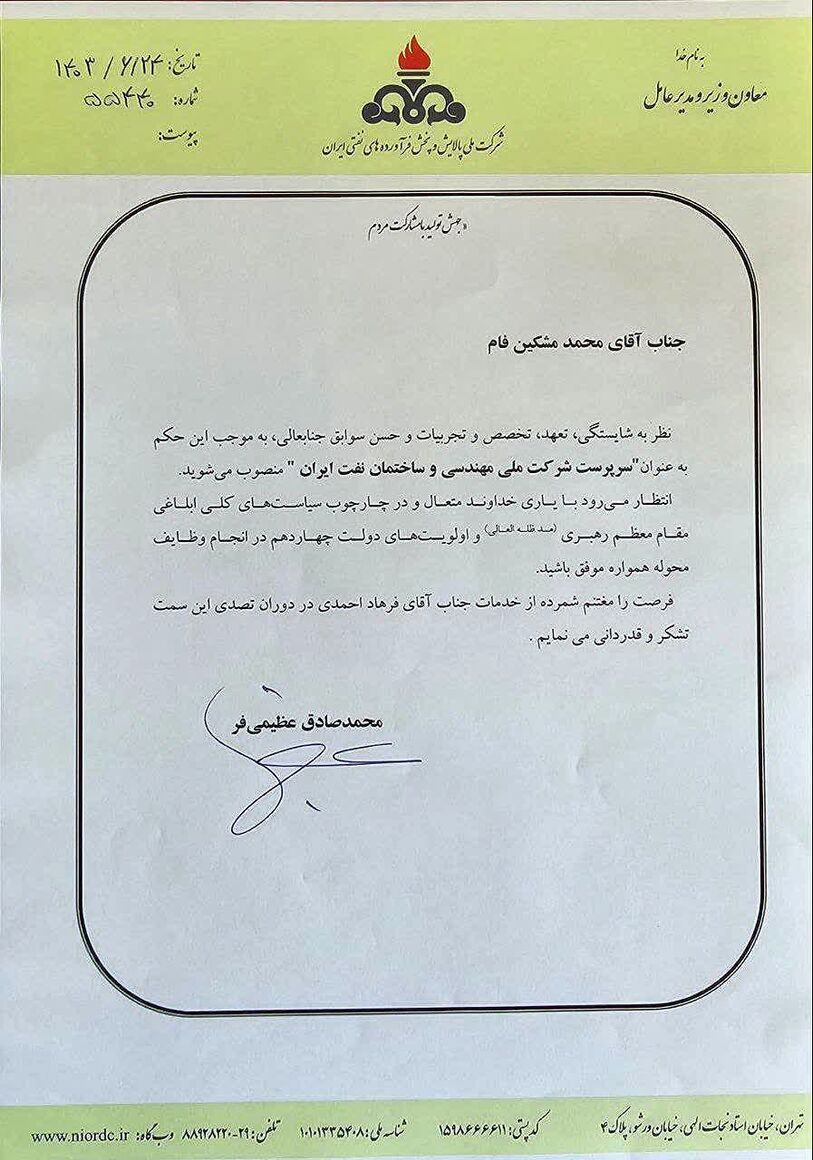 به نام خدا
معاون وزیر و مدیر عامل
شرکت ملی پالایش و پخش فرآورده های نفتی ایران
تاریخ: ۱۴۰۳/۶/۲۴
شماره: ۵۵۴۴۰
پیوست:
«جهش تولید با مشارکت مردم
جناب آقای محمد مشکین فام
نظر به شایستگی، تعهد، تخصص و تجربیات و حسن سوابق جنابعالی، به موجب این حکم
به عنوان"سرپرست شرکت ملی مهندسی و ساختمان نفت ایران " منصوب می‌شوید.
انتظار می‌رود با یاری خداوند متعال و در چارچوب سیاست‌های کلی ابلاغی
مقام معظم رهبری (مد ظله العالی) و اولویت‌های دولت چهاردهم در انجام وظایف
محوله همواره موفق باشید.
فرصت را مغتنم شمرده از خدمات جناب آقای فرهاد احمدی در دوران تصدی این سمت
تشکر و قدردانی می نمایم .
محمدصادق عظیمی‌فر
تهران، خیابان استاد نجات الهی، خیابان ورشو، پلاک ۴ کد پستی: ۱۵۹۸۶۶۶۶۱۱ شناسه ملی: ۱۰۱۰۱۳۳۵۴۰۸ تلفن: ۲۹-۸۸۹۲۸۲۲۰ وب گاه: www.niordc.ir